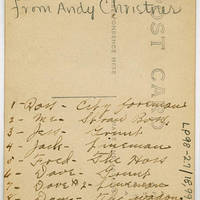 From Andy Christner
POST CARD
CORRESPONDENCE HERE
1 - Ross - City foreman
2 - Me - Straw Boss
3 - Jess - Grunt
4 - Jack - Lineman
5 - Fred - The Hoss
6 - Dave - Grunt
7 - Dave #2 - Lineman
LP98-27/1899